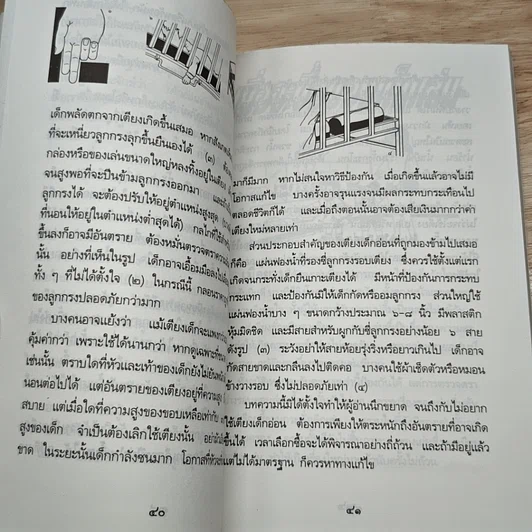 เด็กพลัดตกจากเตียงเกิดขึ้นเสมอ หาก
ที่จะเหนี่ยวลูกกรงลุกขึ้นยืนเองได้ (๑)
กล่องหรือของเล่นขนาดใหญ่หลงทิ้งอยู่ในเตียง
จนสูงพอที่จะปีนข้ามลูกกรงออกมา
ลูกกรงได้ จะต้องปรับให้อยู่ตำแหน่งสูงสุด
ที่นอนให้อยู่ในตำแหน่งต่ำสุดได้) กลไกที่ใช้
ขึ้นลงก็อาจมีอันตราย ต้องหมั่นตรวจตรา
นั้น อย่างที่เห็นในรูป เด็กอาจเอื้อมมือลง
ทั้ง ๆ ที่ไม่ได้ตั้งใจ (๒) ในกรณีนี้ กลอน
ของลูกกรงปลอดภัยกว่ามาก
บางคนอาจแย้งว่า แม้เตียงเด็กจะแพง
คุ้มค่ากว่า เพราะใช้ได้นานกว่า หากดูเฉพาะ
เช่นนั้น ตราบใดที่หัวและเท้าของเด็กยังไม่ยัน
นอนต่อไปได้ แต่อันตรายของเตียงอยู่ที่ความสูง
สบาย แต่เมื่อใดที่ความสูงของขอบเหลือเท่ากับ
สูงของเด็ก จำเป็นต้องเลิกใช้เตียงนั้น
ขาด ในระยะนั้นเด็กกำลังซนมาก โอกาสที่หัว
๔๐
มาก็มีมาก หากไม่สนใจหาวิธีป้องกัน เมื่อเกิดขึ้นแล้วอาจไม่มี
โอกาสแก้ไข บางครั้งอาจรุนแรงจนมีผลกระทบกระเทือนไป
ตลอดชีวิตก็ได้ และเมื่อถึงตอนนั้นอาจต้องเสียเงินมากกว่าค่า
เตียงใหม่หลายเท่า
ส่วนประกอบสำคัญของเตียงเด็กอ่อนที่ถูกมองข้ามไปเสมอ
ก็คือ แผ่นฟองน้ำที่รองซี่ลูกกรงรอบเตียง ซึ่งควรใช้ตั้งแต่แรก
เกิดจนกระทั่งเด็กยืนเกาะเตียงได้ มีหน้าที่ป้องกันการกระทบ
กระแทก และป้องกันมิให้เด็กกัดหรืออมลูกกรง ส่วนใหญ่ใช้
แผ่นฟองน้ำบาง ๆ ขนาดกว้างประมาณ ๖-๘ นิ้ว มีพลาสติก
หุ้มมิดชิด และมีสายสำหรับผูกกับซี่ลูกกรงอย่างน้อย ๖ สาย
ดังรูป (๓) ระวังอย่าให้สายห้อยรุ่งริ่งหรือยาวเกินไป เด็กอาจ
กัดสายขาดและกลืนลงไปติดคอ บางคนใช้ผ้าเช็ดตัวหรือหมอน
ข้างวางรอบ ซึ่งไม่ปลอดภัยเท่า (๔)
บทความนี้มิได้ตั้งใจทำให้ผู้อ่านนึกขยาด จนถึงกับไม่อยาก
ใช้เตียงเด็กอ่อน ต้องการเพียงให้ตระหนักถึงอันตรายที่อาจเกิด
ขึ้นได้ เวลาเลือกซื้อจะได้พิจารณาอย่างถี่ถ้วน และถ้ามีอยู่แล้ว
แต่ไม่ได้มาตรฐาน ก็ควรหาทางแก้ไข
๔๑